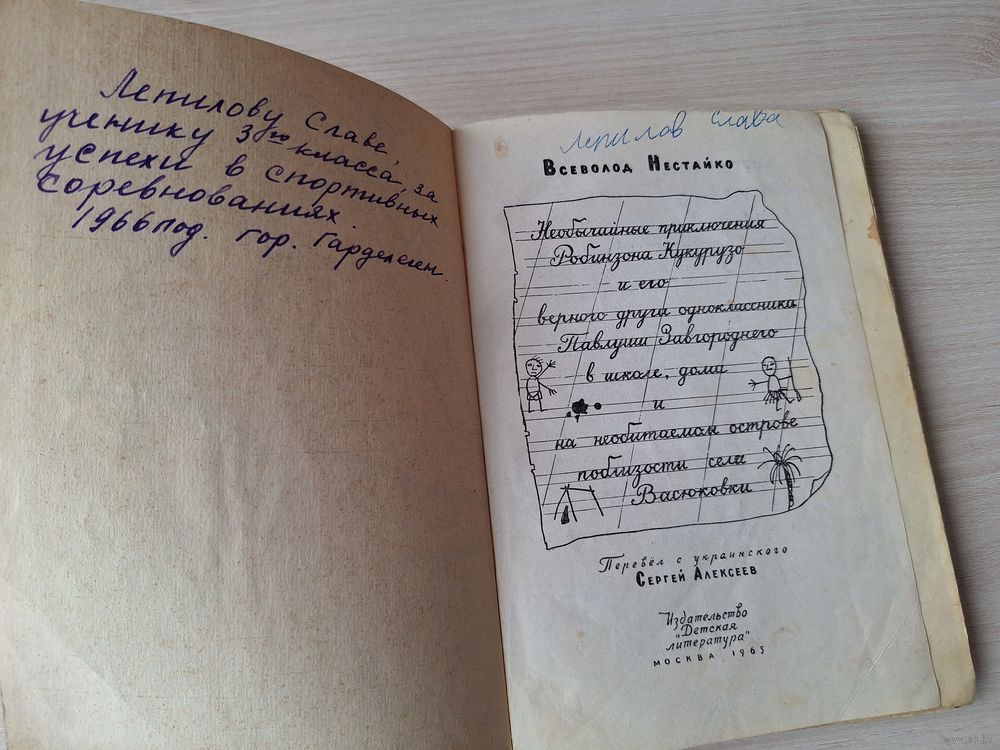 Лепилову Славе,
ученику 3го класса, за
успехи в спортивных
соревнованиях.
1966 год. гор. Гарделеген.
Лепилов Слава
Всеволод Нестайко
Необычайные приключения
Робинзона Кукурузо
и его
верного друга одноклассника
Павлуши Завгороднего
в школе, дома
и
на необитаемом острове
поблизости села
Васюковки
Перевёл с украинского
Сергей Алексеев
Издательство
"Детская
литература"
Москва 1965
www.ay.by